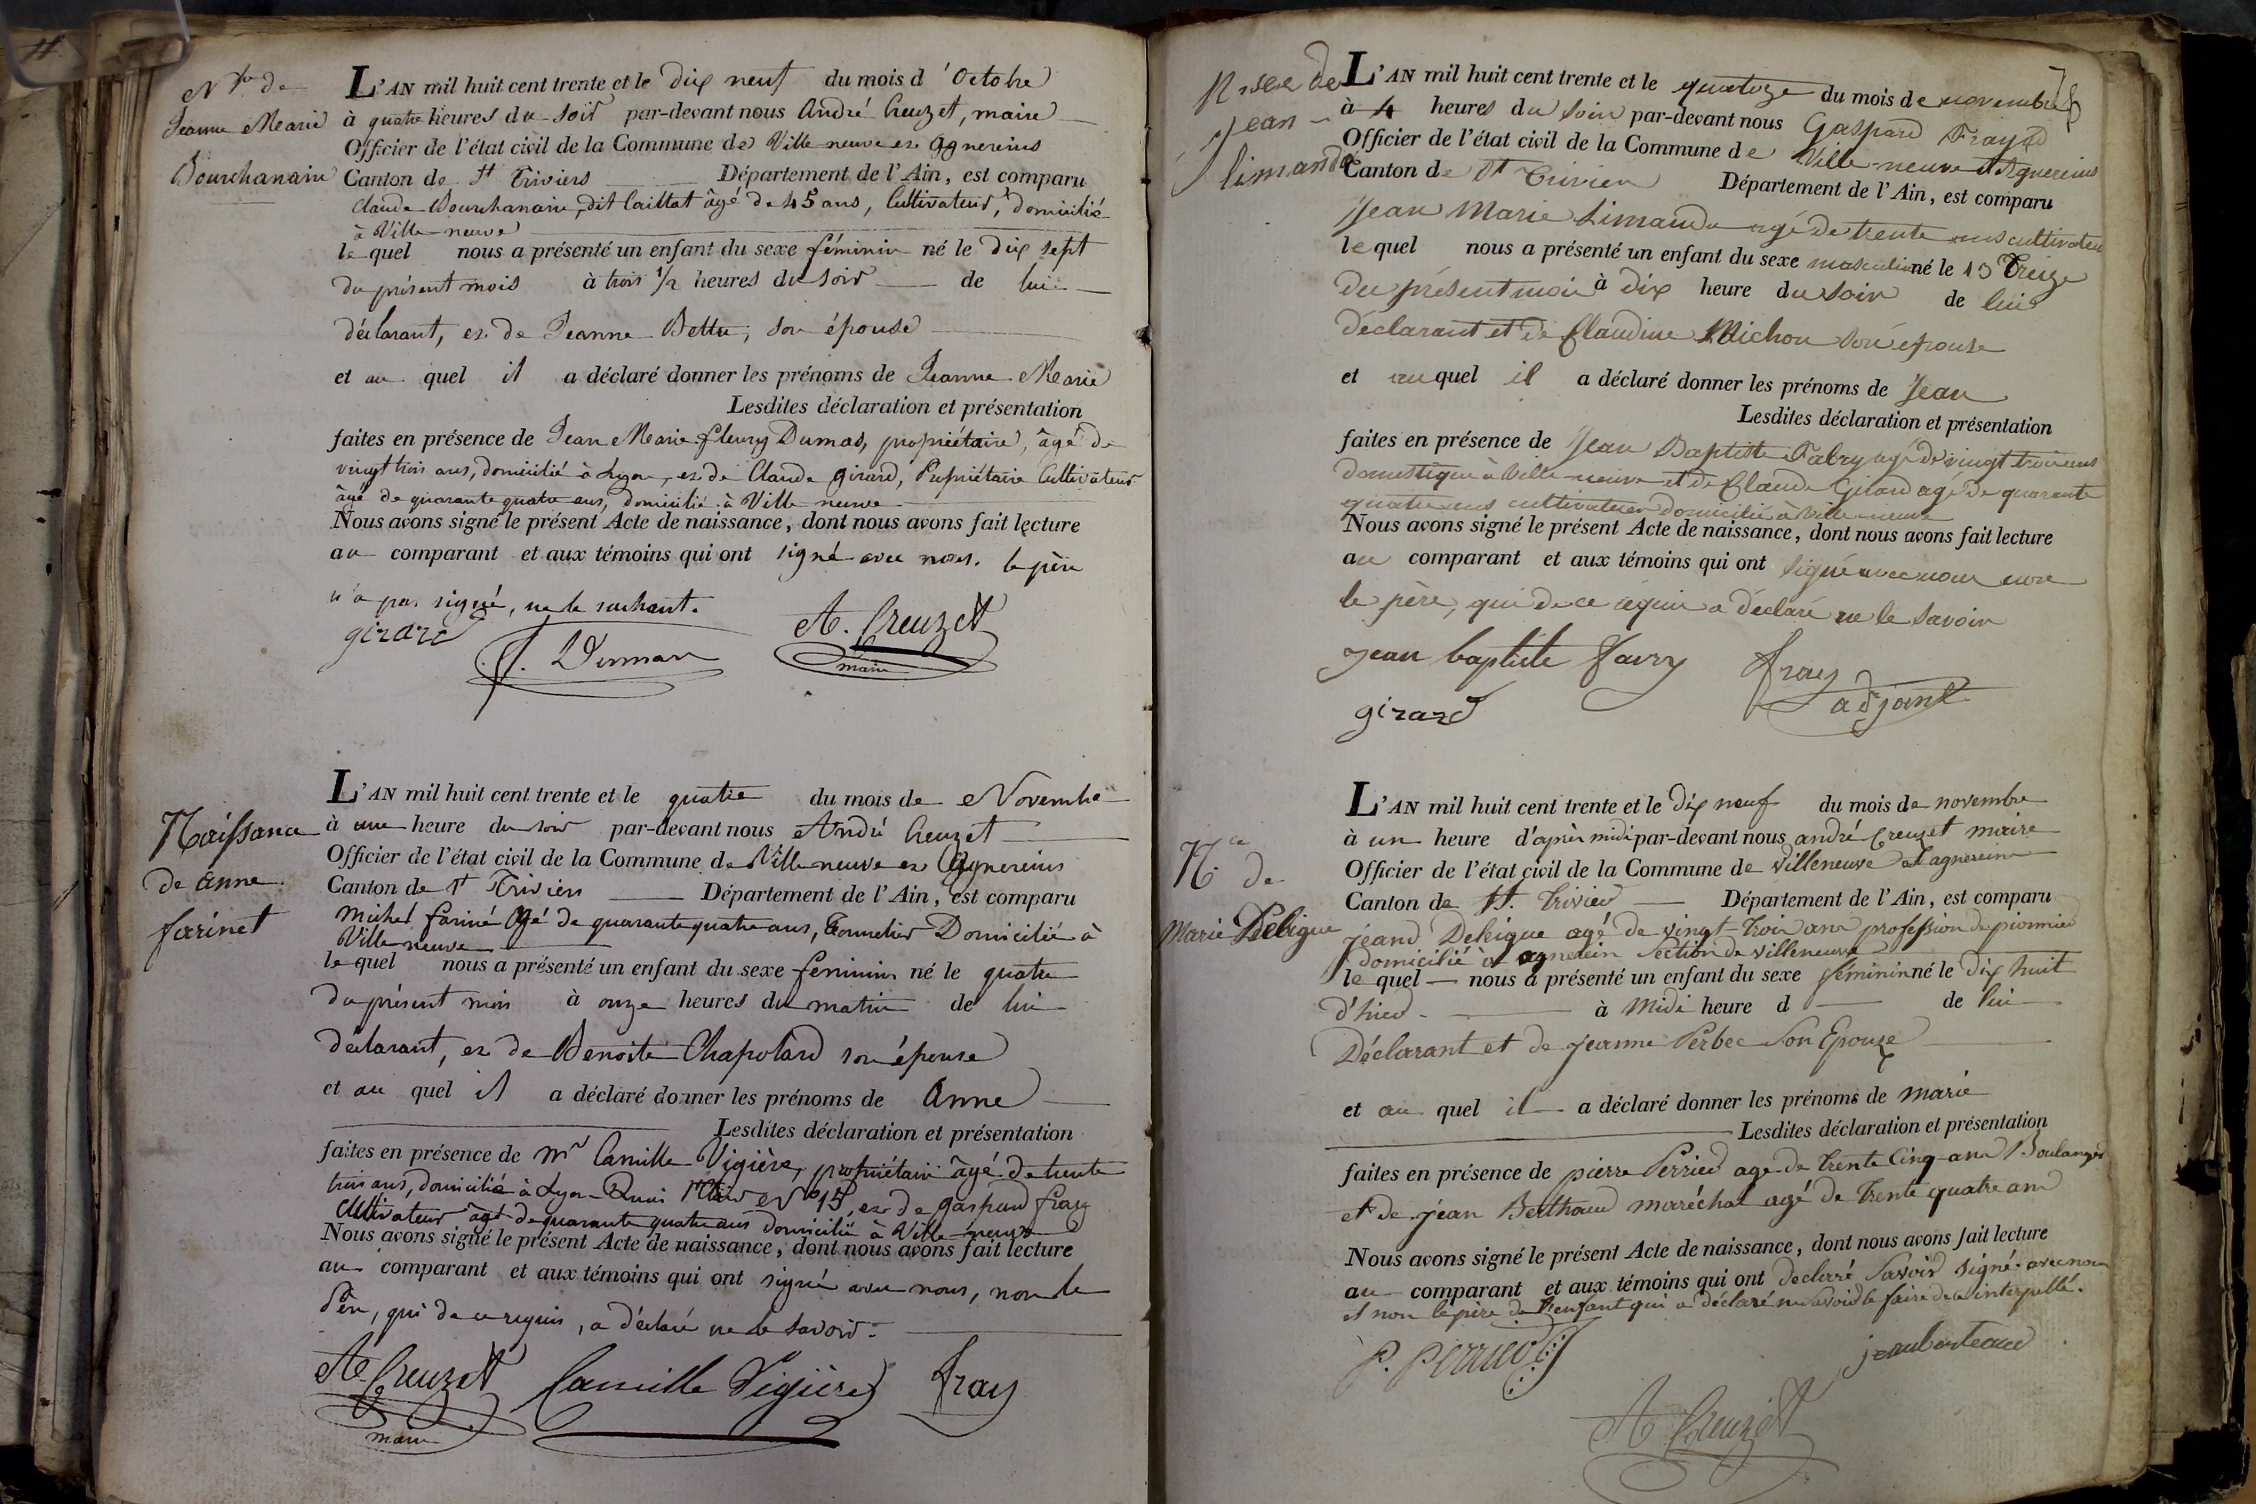 11.
Nce de
Jeanne Marie
Bourchanain
L'AN mil huit cent trente et le dix neuf du mois d'Octobre
à quatre heures du soir par-devant nous André Creuzet, maire
Officier de l'état civil de la Commune de Ville neuve et Agnereins
Canton de St Triviers Département de l'Ain, est comparu
Claude Bourchanain, dit Caillat âgé de 45 ans, Cultivateur, domicilié
à Ville-neuve
lequel nous a présenté un enfant du sexe féminin né le dix sept
du présent mois à trois 1/2 heures du soir de lui
déclarant, et de Jeanne Bettu, son épouse
et au quel il a déclaré donner les prénoms de Jeanne Marie
Lesdites déclaration et présentation
faites en présence de Jean Marie fleury Dumas, propriétaire, âgé de
vingt trois ans, domicilié à Lyon, et de Claude Girard, Propriétaire Cultivateur
âgé de quarante quatre ans, domicilié à Ville neuve
Nous avons signé le présent Acte de naissance, dont nous avons fait lecture
au comparant et aux témoins qui ont signé avec nous. le père
n'a pas signé, ne le sachant.
girard
f. Dumas
At. Creuzet
maire
Naissance
de Anne
farinet
L'AN mil huit cent trente et le quatre du mois de Novembre
à une heure du soir par-devant nous André Creuzet
Officier de l'état civil de la Commune de Ville neuve et Agnereins
Canton de St Triviers Département de l'Ain, est comparu
Michel fariné Agé de quarante quatre ans, Tonnelier Domicilié à
Ville neuve
lequel nous a présenté un enfant du sexe feminin né le quatre
du présent mois à onze heures du matin de lui
declarant, et de Benoite Chapolard son épouse
et au quel il a déclaré donner les prénoms de Anne
Lesdites déclaration et présentation
faites en présence de Mr Camille Vigière, propriétaire âgé de trente
trois ans, domicilié à Lyon Quai St Clair No 15, et de Gaspard fray
Cultivateur âgé de quarante quatre ans domicilié à Ville neuve
Nous avons signé le présent Acte de naissance, dont nous avons fait lecture
au comparant et aux témoins qui ont signé avec nous, non le
Père, qui de ce requis, a déclaré ne le savoir.
At. Creuzet
maire
Camille Vigière
fray
Nssce de
Jean
limandu
L'AN mil huit cent trente et le quatorze du mois de novembre
à 4 heures du soir par-devant nous Gaspard Fray
Officier de l'état civil de la Commune de Ville-neuve et Agnereins
Canton de St Trivier Département de l'Ain, est comparu
Jean Marie Limandu agé de trente ans cultivateur
lequel nous a présenté un enfant du sexe masculin né le 13 Treize
du présent mois à dix heure du soir de lui
déclarant et de Claudine Michon son épouse
et auquel il a déclaré donner les prénoms de Jean
Lesdites déclaration et présentation
faites en présence de Jean Baptiste Fabry agé de vingt trois ans
domestique à Ville-neuve et de Claude Girard agé de quarante
quatre ans cultivateur domicilié à Ville-neuve
Nous avons signé le présent Acte de naissance, dont nous avons fait lecture
au comparant et aux témoins qui ont signé avec nous non
le père, qui de ce requis a déclaré ne le savoir
jean baptiste favry
fray
adjoint
girard
Nce de
Marie Debigue
L'AN mil huit cent trente et le dix neuf du mois de novembre
à un heure d'après midi par-devant nous andré Creuzet maire
Officier de l'état civil de la Commune de villeneuve et agnereins
Canton de St. Trivier Département de l'Ain, est comparu
jean Debigue agé de vingt-trois ans profession de pionnier
domicilié à agnerein Section de villeneuve
lequel nous a présenté un enfant du sexe féminin né le dix huit
d'hier à midi heure d de lui
Déclarant et de jeanne Perbec Son Epouse
et au quel il a déclaré donner les prénoms de marie
Lesdites déclaration et présentation
faites en présence de pierre Perrier agé de trente cinq ans Boulanger
et de jean Berthaud maréchal agé de trente quatre ans
Nous avons signé le présent Acte de naissance, dont nous avons fait lecture
au comparant et aux témoins qui ont declaré Savoir signé avec nous
et non le père de l'enfant qui a déclaré ne savoir le faire de ce interpellé.
P. Perrier
jean berteaud
At Creuzet